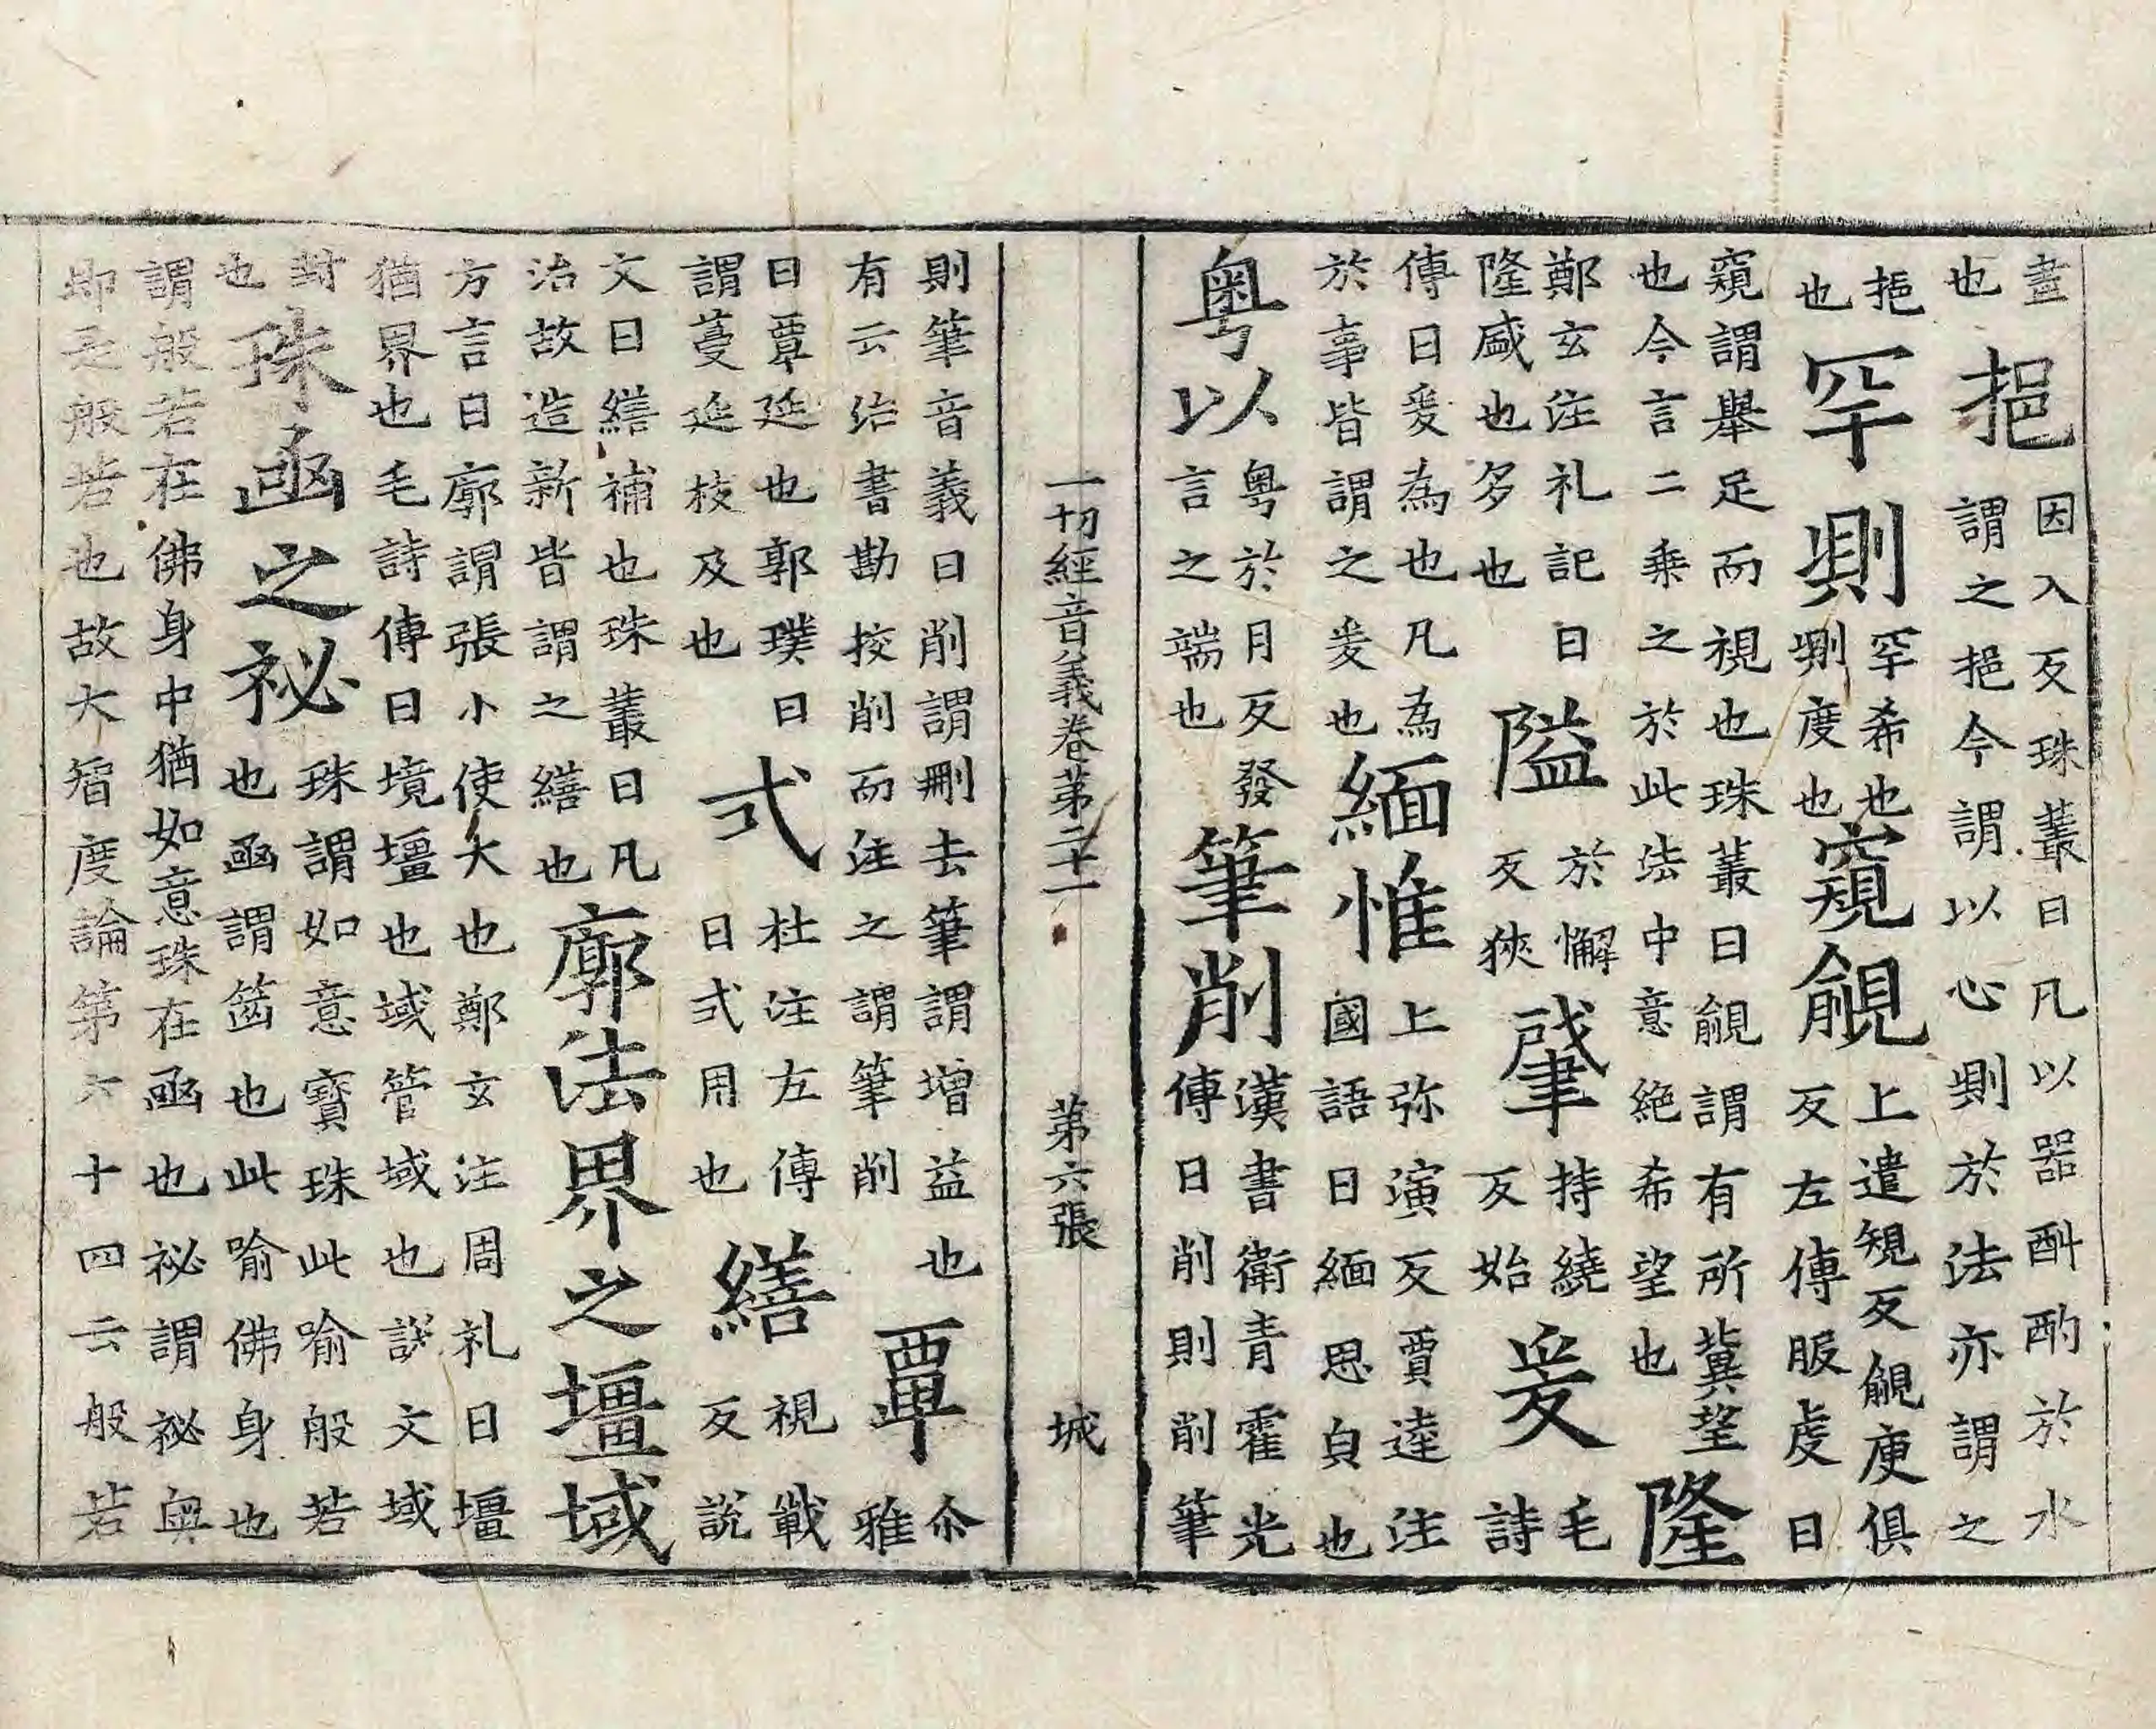 畫也挹因入反珠叢曰凡以器斟酌於水謂之挹今謂以心測於法亦謂之
挹也罕測罕希也測度也窺覦上遣規反覦庾俱反左傳服虔曰
窺謂舉足而視也珠叢曰覦謂有所冀望也今言二乘之於此法中意絶希望也隆
鄭玄注礼記曰隆盛也多也隘於懈反狹肇持繞反始爰毛詩
傳曰爰為也凡為於事皆謂之爰也緬惟上弥演反賈逵注國語曰緬思皃也
粤以粤於月反發言之端也筆削漢書衛青霍光傳曰削則削筆
一切經音義卷第二十一 第六張 城
則筆音義曰削謂刪去筆謂增益也有云治書勘挍削而注之謂筆削覃尒雅
曰覃延也郭璞曰謂蔓延枝及也式杜注左傳曰式用也繕視戰反説
文曰繕補也珠叢曰凡治故造新皆謂之繕也廓法界之壃域
方言曰廓謂張小使大也鄭玄注周礼曰壃猶界也毛詩傳曰境壃也域管域也説文域
封也珠凾之祕珠謂如意寶珠此喻般若也凾謂也此喻佛身也
謂般若在佛身中猶如意珠在凾也祕謂祕奧即是般若也故大智度論第六十四云般若